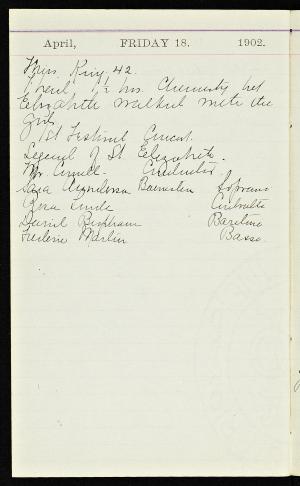 April, FRIDAY 18. 1902.
Miss. King, 42.
1½ hrs. Chemistry
Elizabeth walked with the
girls
1st Festival Concert.
Legend of St. Elizabeth.
Mr. Conductor.
Sara Anderson Soprano
Rosa Linde Contralto
David Bispham Baritone
Frederic Martin Basso.